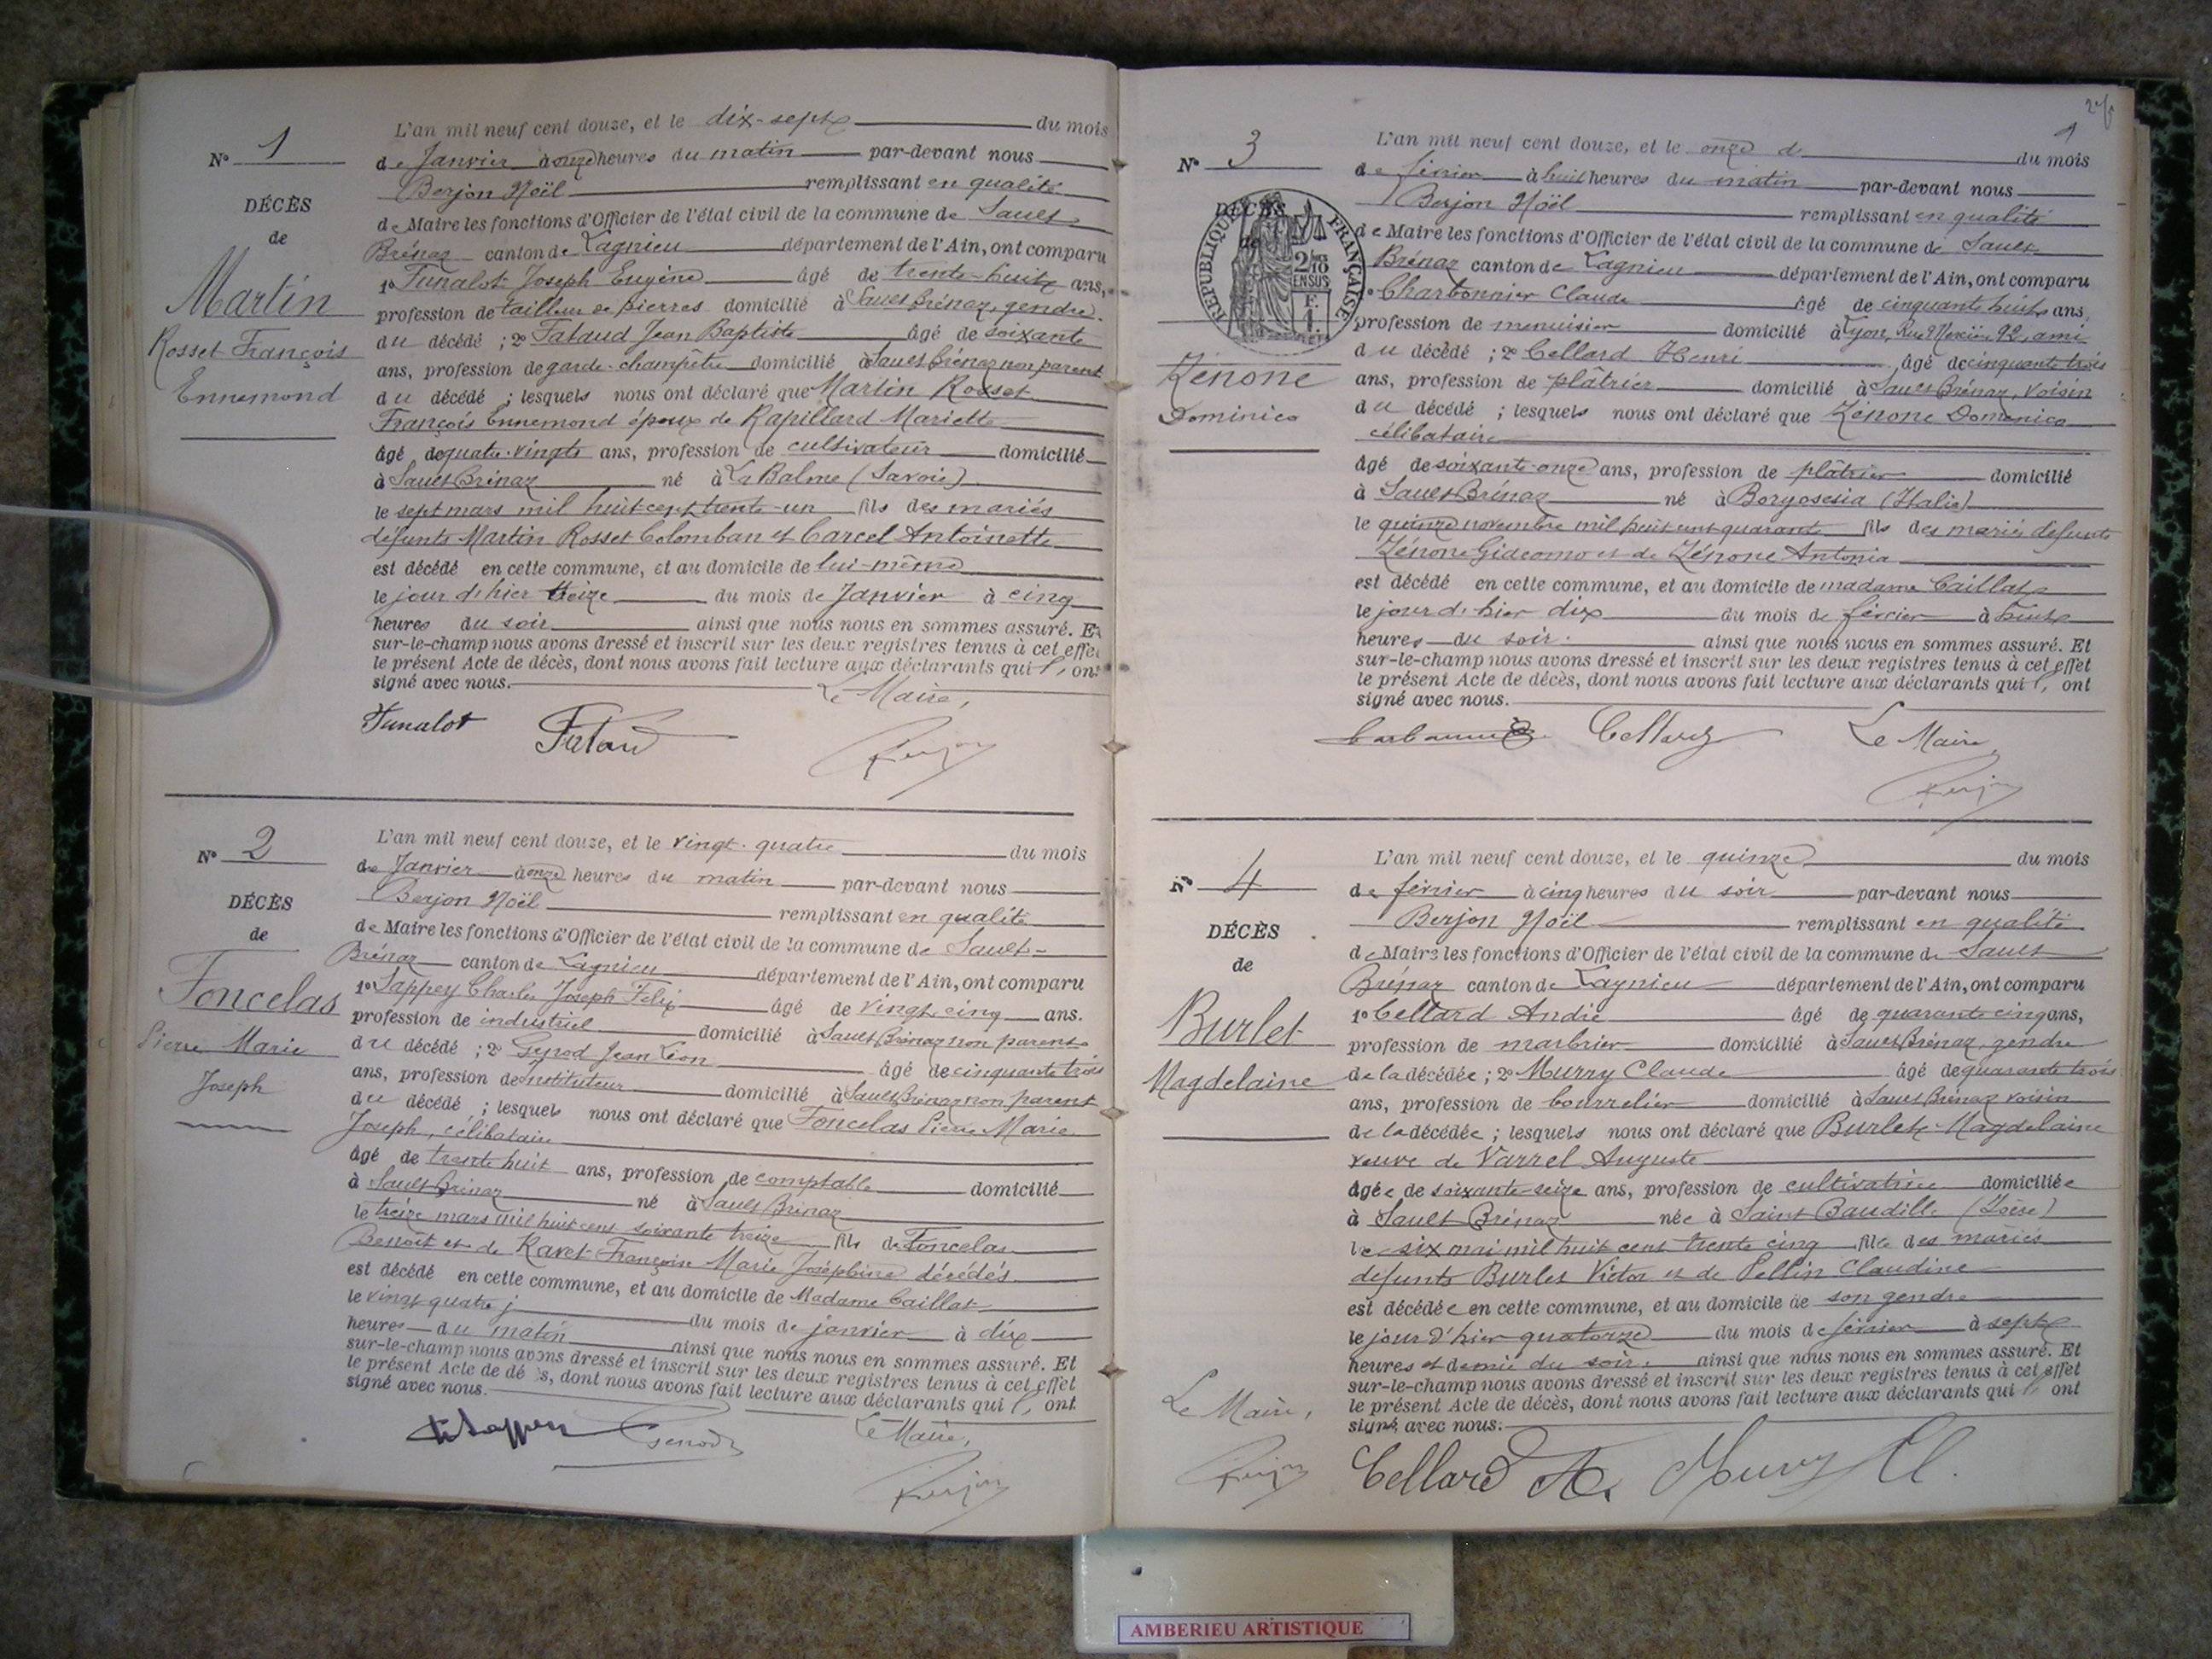 N° 1
DÉCÈS
de
Martin
Rosset François
Ennemond
L'an mil neuf cent douze, et le dix-sept du mois
de Janvier à onze heures du matin par-devant nous
Berjon Noël remplissant en qualité
de Maire les fonctions d'Officier de l'état civil de la commune de Sault
Brénaz canton de Lagnieu département de l'Ain, ont comparu
1° Funalot Joseph Eugène âgé de trente-huit ans,
profession de tailleur de pierres domicilié à Sault Brénaz, gendre
du décédé ; 2° Fataud Jean Baptiste âgé de soixante
ans, profession de garde-champêtre domicilié à Sault Brénaz non parent
du décédé ; lesquels nous ont déclaré que Martin Rosset
François Ennemond époux de Rapillard Mariette
âgé de quatre-vingts ans, profession de cultivateur domicilié
à Sault Brénaz né à La Balme (Savoie)
le sept mars mil huit cent trente-un fils des mariés
défunts Martin Rosset Colomban et Carcel Antoinette
est décédé en cette commune, et au domicile de lui-même
le jour d'hier treize du mois de Janvier à cinq
heures du soir ainsi que nous nous en sommes assuré. Et
sur-le-champ nous avons dressé et inscrit sur les deux registres tenus à cet effet
le présent Acte de décès, dont nous avons fait lecture aux déclarants qui l' ont
signé avec nous.
Le Maire,
Funalot Fataud Berjon
N° 2
DÉCÈS
de
Foncelas
Pierre Marie
Joseph
L'an mil neuf cent douze, et le vingt-quatre du mois
de Janvier à onze heures du matin par-devant nous
Berjon Noël remplissant en qualité
de Maire les fonctions d'Officier de l'état civil de la commune de Sault-
Brénaz canton de Lagnieu département de l'Ain, ont comparu
1° Sappey Charles Joseph Félix âgé de vingt cinq ans.
profession de industriel domicilié à Sault Brénaz non parent
du décédé ; 2° Genod Jean Léon âgé de cinquante trois
ans, profession de instituteur domicilié à Sault Brénaz non parent
du décédé ; lesquels nous ont déclaré que Foncelas Pierre Marie
Joseph, célibataire
âgé de trente huit ans, profession de comptable domicilié
à Sault Brénaz né à Sault Brénaz
le treize mars mil huit cent soixante treize fils de Foncelas
Benoît et de Ravet Françoise Marie Joséphine décédés
est décédé en cette commune, et au domicile de Madame Caillat
le vingt quatre j du mois de janvier à dix
heures du matin ainsi que nous nous en sommes assuré. Et
sur-le-champ nous avons dressé et inscrit sur les deux registres tenus à cet effet
le présent Acte de décès, dont nous avons fait lecture aux déclarants qui l' ont
signé avec nous.
Le Maire,
Sappey Genod Berjon
1
N° 3
DÉCÈS
de
RÉPUBLIQUE FRANÇAISE
2/10
EN SUS
Zénone
Dominico
L'an mil neuf cent douze, et le onze d du mois
de février à huit heures du matin par-devant nous
Berjon Noël remplissant en qualité
de Maire les fonctions d'Officier de l'état civil de la commune de Sault
Brénaz canton de Lagnieu département de l'Ain, ont comparu
1° Charbonnier Claude âgé de cinquante huit ans,
profession de menuisier domicilié à Lyon, Rue 92, ami
du décédé ; 2° Cellard Henri âgé de cinquante trois
ans, profession de plâtrier domicilié à Sault Brénaz, voisin
du décédé ; lesquels nous ont déclaré que Zénone Domenico
célibataire
âgé de soixante-onze ans, profession de plâtrier domicilié
à Sault Brénaz né à Borgosesia (Italie)
le quinze novembre mil huit cent quarante fils des mariés défunts
Zénone Giacomo et de Zénone Antonia
est décédé en cette commune, et au domicile de madame Caillat
le jour d'hier dix du mois de février à huit
heures du soir. ainsi que nous nous en sommes assuré. Et
sur-le-champ nous avons dressé et inscrit sur les deux registres tenus à cet effet
le présent Acte de décès, dont nous avons fait lecture aux déclarants qui l' ont
signé avec nous.
Cellard Le Maire,
Berjon
N° 4
DÉCÈS
de
Burlet
Magdelaine
L'an mil neuf cent douze, et le quinze du mois
de février à cinq heures du soir par-devant nous
Berjon Noël remplissant en qualité
de Maire les fonctions d'Officier de l'état civil de la commune de Sault
Brénaz canton de Lagnieu département de l'Ain, ont comparu
1° Cellard André âgé de quarante cinq ans,
profession de marbrier domicilié à Sault Brénaz, gendre
de la décédée ; 2° Murry Claude âgé de quarante trois
ans, profession de bourrelier domicilié à Sault Brénaz voisin
de la décédée ; lesquels nous ont déclaré que Burlet Magdelaine
veuve de Varrel Auguste
âgée de soixante-seize ans, profession de cultivatrice domiciliée
à Sault Brénaz née à Saint Baudille (Isère)
le six mai mil huit cent trente cinq fille des mariés
défunts Burlet Victor et de Pellin Claudine
est décédée en cette commune, et au domicile de son gendre
le jour d'hier quatorze du mois de février à sept
heures et demie du soir. ainsi que nous nous en sommes assuré. Et
sur-le-champ nous avons dressé et inscrit sur les deux registres tenus à cet effet
le présent Acte de décès, dont nous avons fait lecture aux déclarants qui l' ont
signé avec nous.
Le Maire,
Berjon Cellard A. Murry Cl.
AMBERIEU ARTISTIQUE